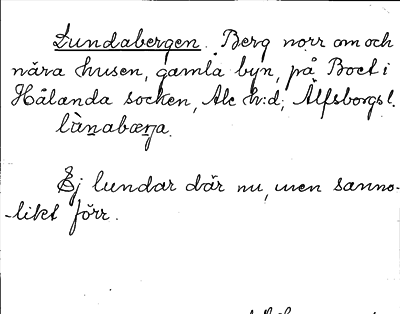 Lundabergen. Berg norr om och
nära husen, gamla byn, på Boet i
Hålanda socken, Ale h:d, Älfsborgs l.
lànabæŋa.
Ej lundar där nu, men sanno-
-likt förr.